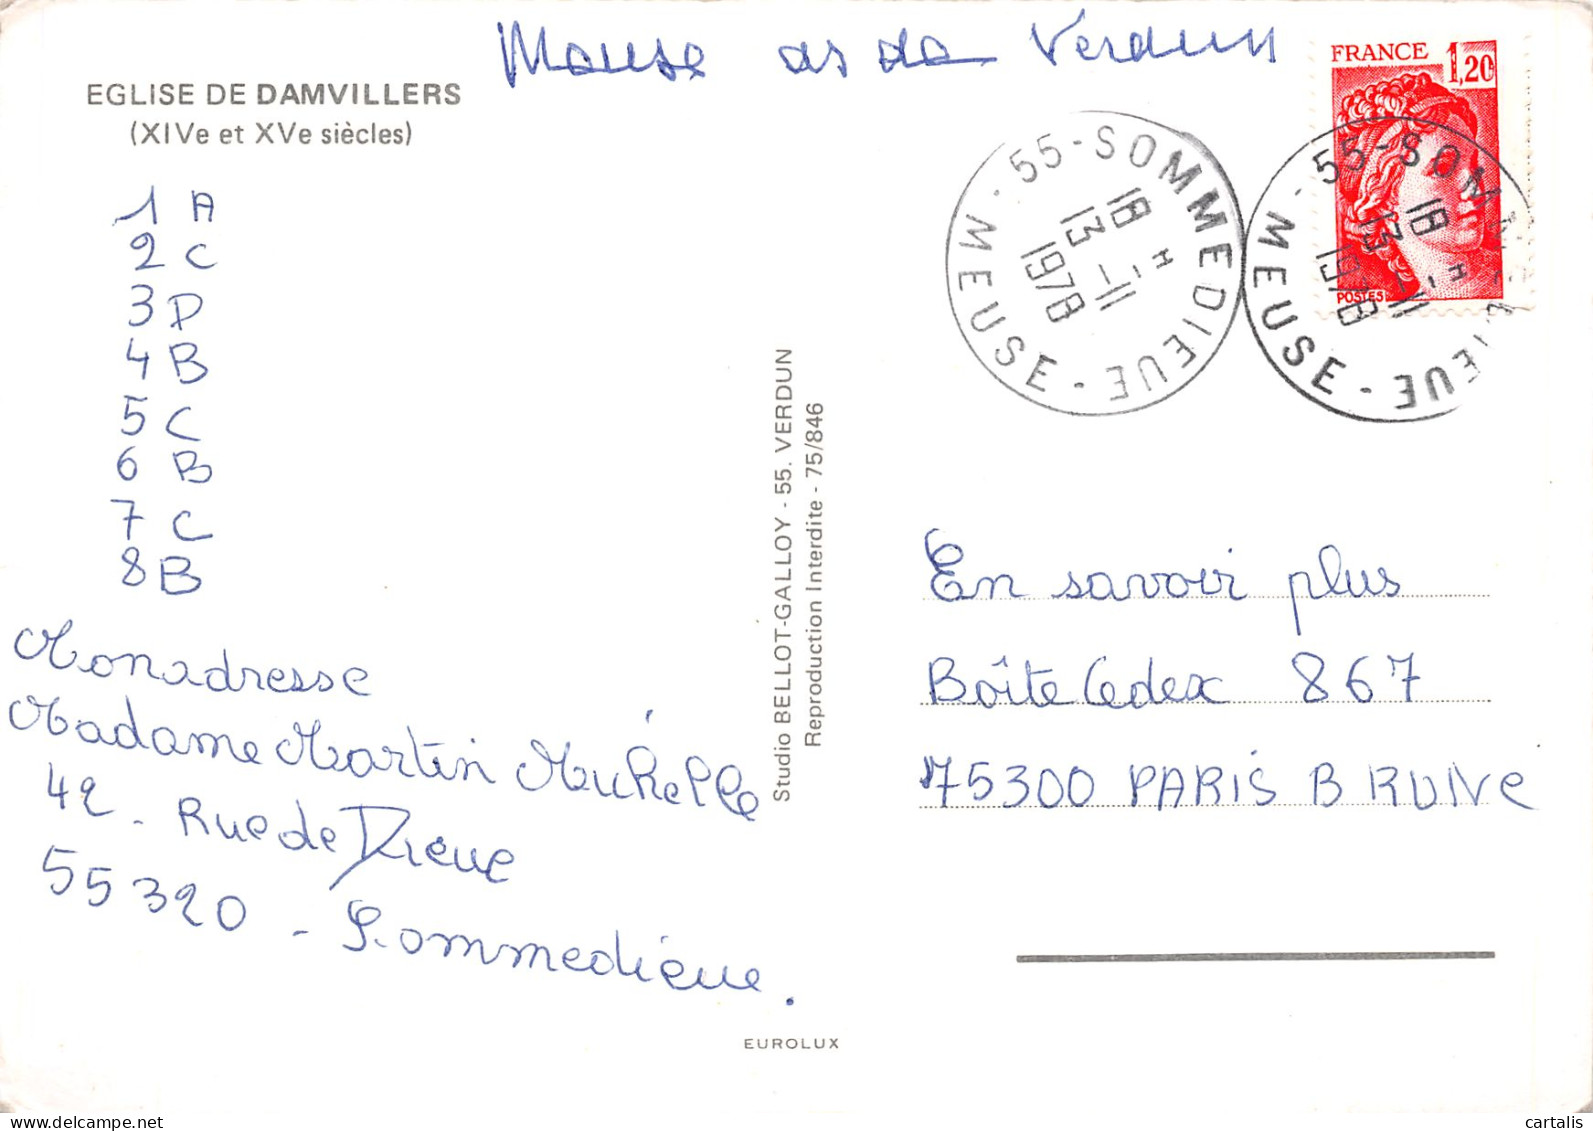 Meuse as da Verdun
EGLISE DE DAMVILLERS
(XIVe et XVe siècles)
1 A
2 C
3 D
4 B
5 C
6 B
7 C
8 B
Mon adresse
Madame Martin Michelle
42 - Rue de Dieue
55320 - Sommedieue.
Studio BELLOT-GALLOY - 55. VERDUN
Reproduction Interdite - 75/846
EUROLUX
FRANCE 1,20
POSTES
55-SOMMEDIEUE - MEUSE
18 H
13 -11
1978
55-SOMMEDIEUE - MEUSE
18 H
13 -11
1978
En savoir plus
Boîte Cedex 867
75300 PARIS BRUNE
cartalis